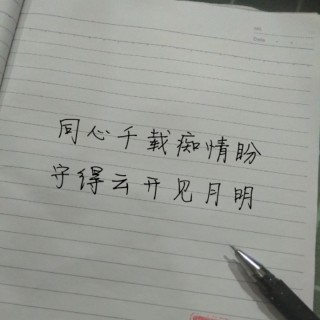 同心千载痴情盼
守得云开见月明